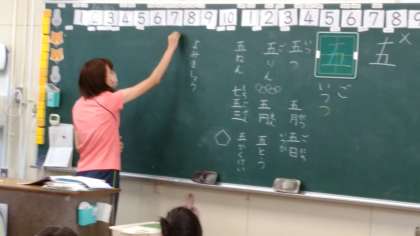 1 2 3 4 5 6 7 8 9
1 2 3 4 5 6 7 8
五
×
五
ご
いつつ
五つ
五月
五日
五りん
五円
五とう
五ねん
七五三
五かくけい
よみましょう